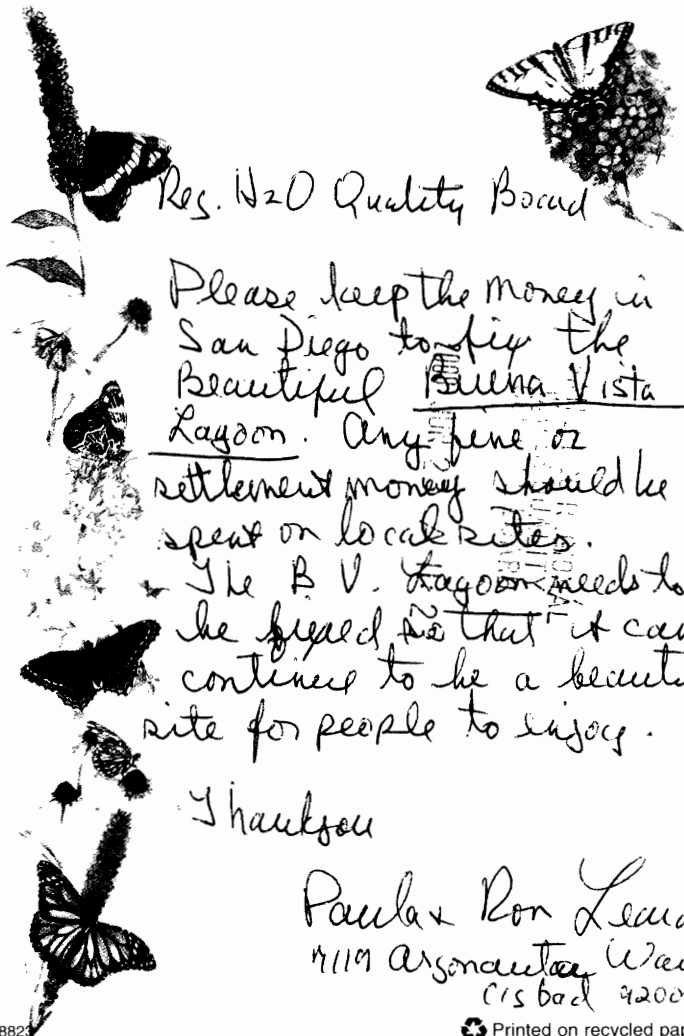 Reg. H2O Quality Board
Please keep the money in
San Diego to fix the
Beautiful Buena Vista
Lagoon. Any fine or
settlement money should be
spent on local sites.
The B V. Lagoon needs to
be fixed so that it can
continue to be a beauti
site for people to enjoy.
Thankyou
Paula & Ron
7119 Argonauta Way
C'sbad 9200
8823
Printed on recycled pap